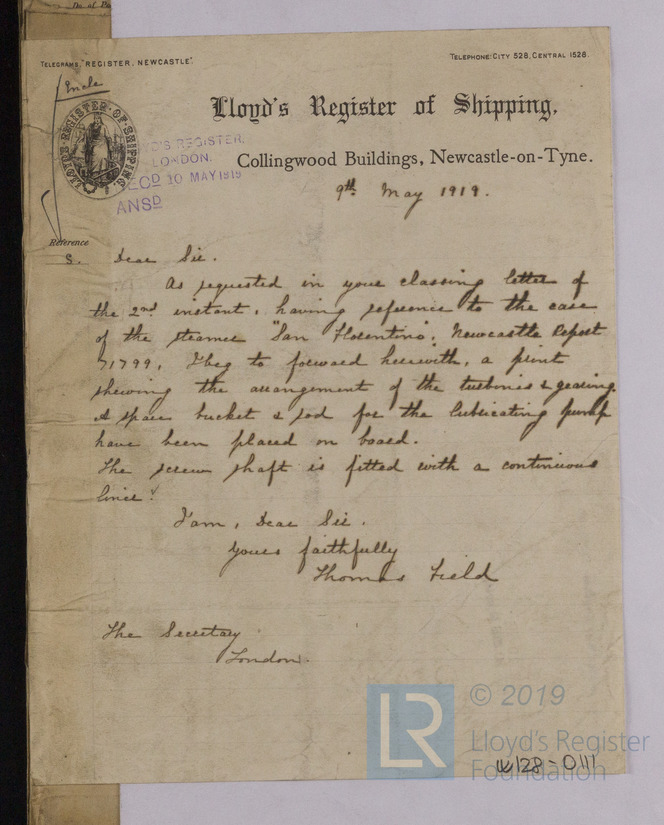 TELEGRAMS, "REGISTER, NEWCASTLE".
TELEPHONE: CITY 528, CENTRAL 1528.
LLOYD'S REGISTER OF SHIPPING
Lloyd's Register of Shipping,
LLOYD'S REGISTER,
LONDON.
RECD 10 MAY 1919
ANSD
Collingwood Buildings, Newcastle-on-Tyne.
9th May 1919.
Reference
S.
Dear Sir.
As requested in your classing letter of
the 2nd instant, having reference to the case
of the steamer "San Florentino", Newcastle Report
71799, I beg to forward herewith, a print
shewing the arrangement of the turbines & gearing.
A spare bucket & rod for the lubricating pump
have been placed on board.
The screw shaft is fitted with a continuous
liner.
I am, Dear Sir.
Yours faithfully
Thomas Field
The Secretary
London.
LR
© 2019
Lloyd's Register
Foundation
W128-0111